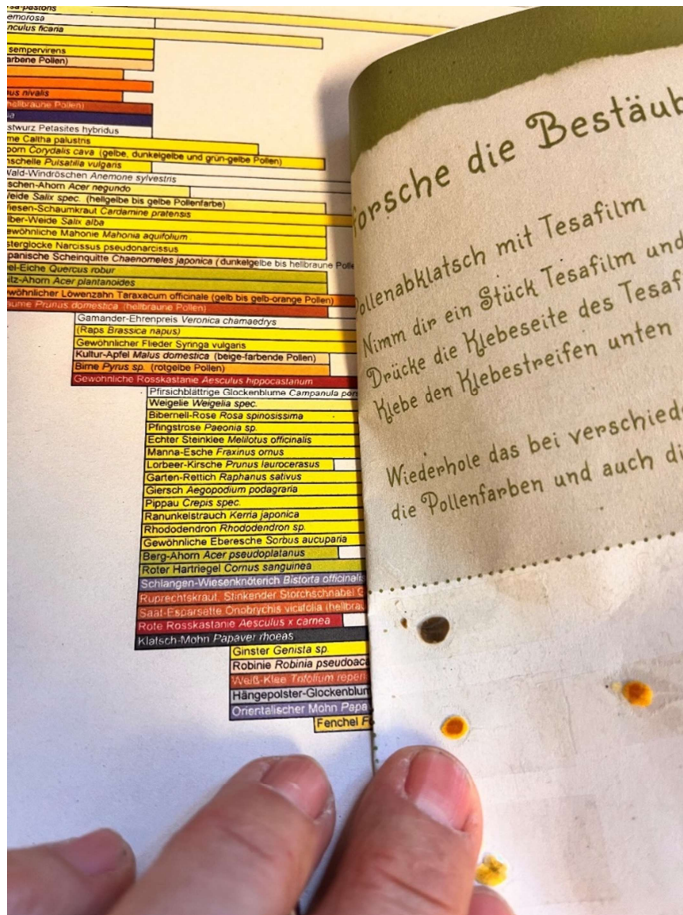 emorosa
nculus ficaria
sempervirens
arbene Pollen)
us nivalis
hellbraune Pollen)
stwurz Petasites hybridus
me Caltha palustris
porn Corydalis cava (gelbe, dunkelgelbe und grün-gelbe Pollen)
nschelle Pulsatilla vulgaris
Wald-Windröschen Anemone sylvestris
schen-Ahorn Acer negundo
Weide Salix spec. (hellgelbe bis gelbe Pollenfarbe)
Wiesen-Schaumkraut Cardamine pratensis
lber-Weide Salix alba
ewöhnliche Mahonie Mahonia aquifolium
sterglocke Narcissus pseudonarcissus
panische Scheinquitte Chaenomeles japonica (dunkelgelbe bis hellbraune Polle
iel-Eiche Quercus robur
itz-Ahorn Acer plantanoides
ewöhnlicher Löwenzahn Taraxacum officinale (gelb bis gelb-orange Pollen)
aume Prunus domestica (hellbraune Pollen)
Gamander-Ehrenpreis Veronica chamaedrys
(Raps Brassica napus)
Gewöhnlicher Flieder Syringa vulgaris
Kultur-Apfel Malus domestica (beige-farbende Pollen)
Birne Pyrus sp. (rotgelbe Pollen)
Gewöhnliche Rosskastanie Aesculus hippocastanum
Pfirsichblättrige Glockenblume Campanula per
Weigelie Weigelia spec.
Bibernell-Rose Rosa spinosissima
Pfingstrose Paeonia sp.
Echter Steinklee Melilotus officinalis
Manna-Esche Fraxinus ornus
Lorbeer-Kirsche Prunus laurocerasus
Garten-Rettich Raphanus sativus
Giersch Aegopodium podagraria
Pippau Crepis spec.
Ranunkelstrauch Kerria japonica
Rhododendron Rhododendron sp.
Gewöhnliche Eberesche Sorbus aucuparia
Berg-Ahorn Acer pseudoplatanus
Roter Hartriegel Cornus sanguinea
Schlangen-Wiesenknöterich Bistorta officinalis
Ruprechtskraut, Stinkender Storchschnabel G
Saat-Esparsette Onobrychis viciifolia (hellbrau
Rote Rosskastanie Aesculus x carnea
Klatsch-Mohn Papaver rhoeas
Ginster Genista sp.
Robinie Robinia pseudoac
Weiß-Klee Trifolium repen
Hängepolster-Glockenblum
Orientalischer Mohn Papa
Fenchel F
forsche die Bestäub
Pollenabklatsch mit Tesafilm
Nimm dir ein Stück Tesafilm und
Drücke die Klebeseite des Tesaf
Klebe den Klebestreifen unten
Wiederhole das bei verschied
die Pollenfarben und auch di